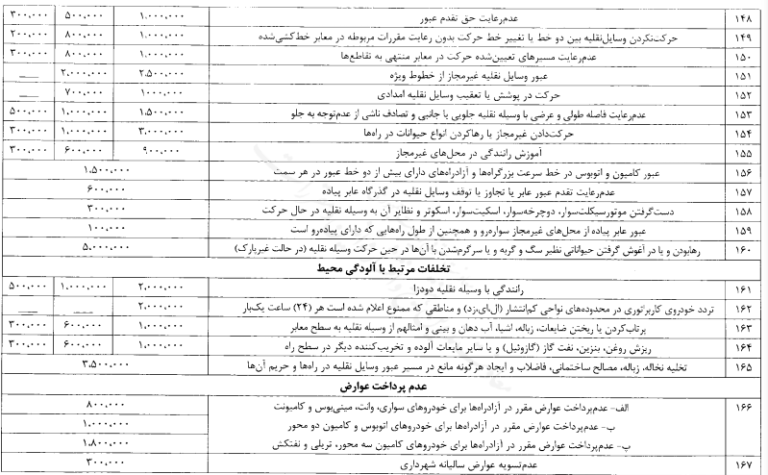 ۱۴۸ عدم‌رعایت حق تقدم عبور ۱.۰۰۰.۰۰۰ ۵۰۰.۰۰۰ ۳۰۰.۰۰۰
۱۴۹ حرکت‌نکردن وسایل‌نقلیه بین دو خط یا تغییر خط حرکت بدون رعایت مقررات مربوطه در معابر خط‌کشی‌شده ۱.۰۰۰.۰۰۰ ۸۰۰.۰۰۰ ۲۰۰.۰۰۰
۱۵۰ عدم‌رعایت مسیرهای تعیین‌شده حرکت در معابر منتهی به تقاطع‌ها ۱.۰۰۰.۰۰۰ ۸۰۰.۰۰۰ ۳۰۰.۰۰۰
۱۵۱ عبور وسایل نقلیه غیرمجاز از خطوط ویژه ۲.۵۰۰.۰۰۰ ۲.۰۰۰.۰۰۰ ___
۱۵۲ حرکت در پوشش یا تعقیب وسایل نقلیه امدادی ۱۰۰۰.۰۰۰ ۷۰۰.۰۰۰ ___
۱۵۳ عدم‌رعایت فاصله طولی و عرضی با وسیله نقلیه جلویی یا جانبی و تصادف ناشی از عدم‌توجه به جلو ۱.۵۰۰.۰۰۰ ۱.۰۰۰.۰۰۰ ۵۰۰.۰۰۰
۱۵۴ حرکت‌دادن غیرمجاز یا رهاکردن انواع حیوانات در راه‌ها ۳.۰۰۰.۰۰۰ ۱.۰۰۰.۰۰۰ ۳۰۰.۰۰۰
۱۵۵ آموزش رانندگی در محل‌های غیرمجاز ۹۰۰.۰۰۰ ۶۰۰.۰۰۰ ۳۰۰.۰۰۰
۱۵۶ عبور کامیون و اتوبوس در خط سرعت بزرگراه‌ها و آزادراه‌های دارای بیش از دو خط عبور در هر سمت ۱.۵۰۰.۰۰۰
۱۵۷ عدم‌رعایت تقدم عبور عابر یا تجاوز یا توقف وسایل نقلیه در گذرگاه عابر پیاده ۶۰۰.۰۰۰
۱۵۸ دست‌گرفتن موتورسیکلت‌سوار، دوچرخه‌سوار، اسکیت‌سوار، اسکوتر و نظایر آن به وسیله نقلیه در حال حرکت ۳۰۰.۰۰۰
۱۵۹ عبور عابر پیاده از محل‌های غیرمجاز سواره‌رو و همچنین از طول راه‌هایی که دارای پیاده‌رو است ۱۰۰.۰۰۰
۱۶۰ رهابودن و یا در آغوش گرفتن حیواناتی نظیر سگ و گربه و یا سرگرم‌شدن با آن‌ها در حین حرکت وسیله نقلیه (در حالت غیرپارک) ۵.۰۰۰.۰۰۰
تخلفات مرتبط با آلودگی محیط
۱۶۱ رانندگی با وسیله نقلیه دودزا ۲.۰۰۰.۰۰۰ ۱.۰۰۰.۰۰۰ ۵۰۰.۰۰۰
۱۶۲ تردد خودروی کاربراتوری در محدوده‌های نواحی کم‌انتشار (ال.ای.زد) و مناطقی که ممنوع اعلام شده است هر (۲۴) ساعت یک‌بار ۲.۰۰۰.۰۰۰ ___ ___
۱۶۳ پرتاب‌کردن یا ریختن ضایعات، زباله، اشیا، آب دهان و بینی و امثالهم از وسیله نقلیه به سطح معابر ۱.۰۰۰.۰۰۰ ۶۰۰.۰۰۰ ۳۰۰.۰۰۰
۱۶۴ ریزش روغن، بنزین، نفت گاز (گازوئیل) و یا سایر مایعات آلوده و تخریب‌کننده دیگر در سطح راه ۱.۰۰۰.۰۰۰ ۶۰۰.۰۰۰ ۳۰۰.۰۰۰
۱۶۵ تخلیه نخاله، زباله، مصالح ساختمانی، فاضلاب و ایجاد هرگونه مانع در مسیر عبور وسایل نقلیه در راه‌ها و حریم آن‌ها ۳.۵۰۰.۰۰۰
عدم پرداخت عوارض
۱۶۶ الف- عدم‌پرداخت عوارض مقرر در آزادراه‌ها برای خودروهای سواری، وانت، مینی‌بوس و کامیونت ۸۰۰.۰۰۰
ب- عدم‌پرداخت عوارض مقرر در آزادراه‌ها برای خودروهای اتوبوس و کامیون دو محور ۱.۰۰۰.۰۰۰
پ- عدم‌پرداخت عوارض مقرر در آزادراه‌ها برای خودروهای کامیون سه محور، تریلی و نفتکش ۱.۸۰۰.۰۰۰
۱۶۷ عدم‌تسویه عوارض سالیانه شهرداری ۳۰۰.۰۰۰